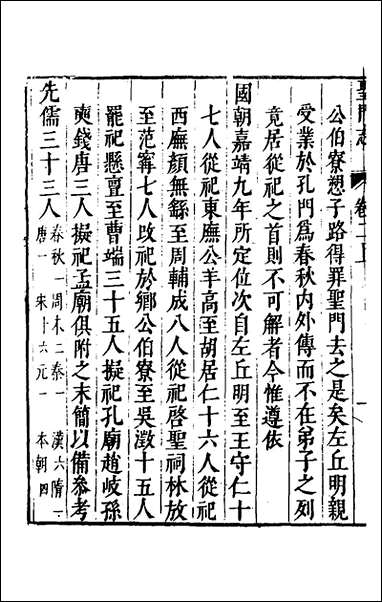 聖門志 卷一上
公伯寮愬子路得罪聖門去之是矣左丘明親
受業於孔門爲春秋内外傳而不在弟子之列
竟居從祀之首則不可解者今惟遵依
國朝嘉靖九年所定位次自左丘明至王守仁十
七人從祀東廡公羊高至胡居仁十六人從祀
西廡顏無繇至周輔成八人從祀啓聖祠林放
至范甯七人改祀於鄉公伯寮至吳澂十五人
罷祀懸亶至曹端三十五人擬祀孔廟趙岐孫
奭錢唐三人擬祀孟廟俱附之末簡以備參考
先儒三十三人 春秋一 周末二 秦一 漢六 隋一 唐一 宋十六 元一 本朝四